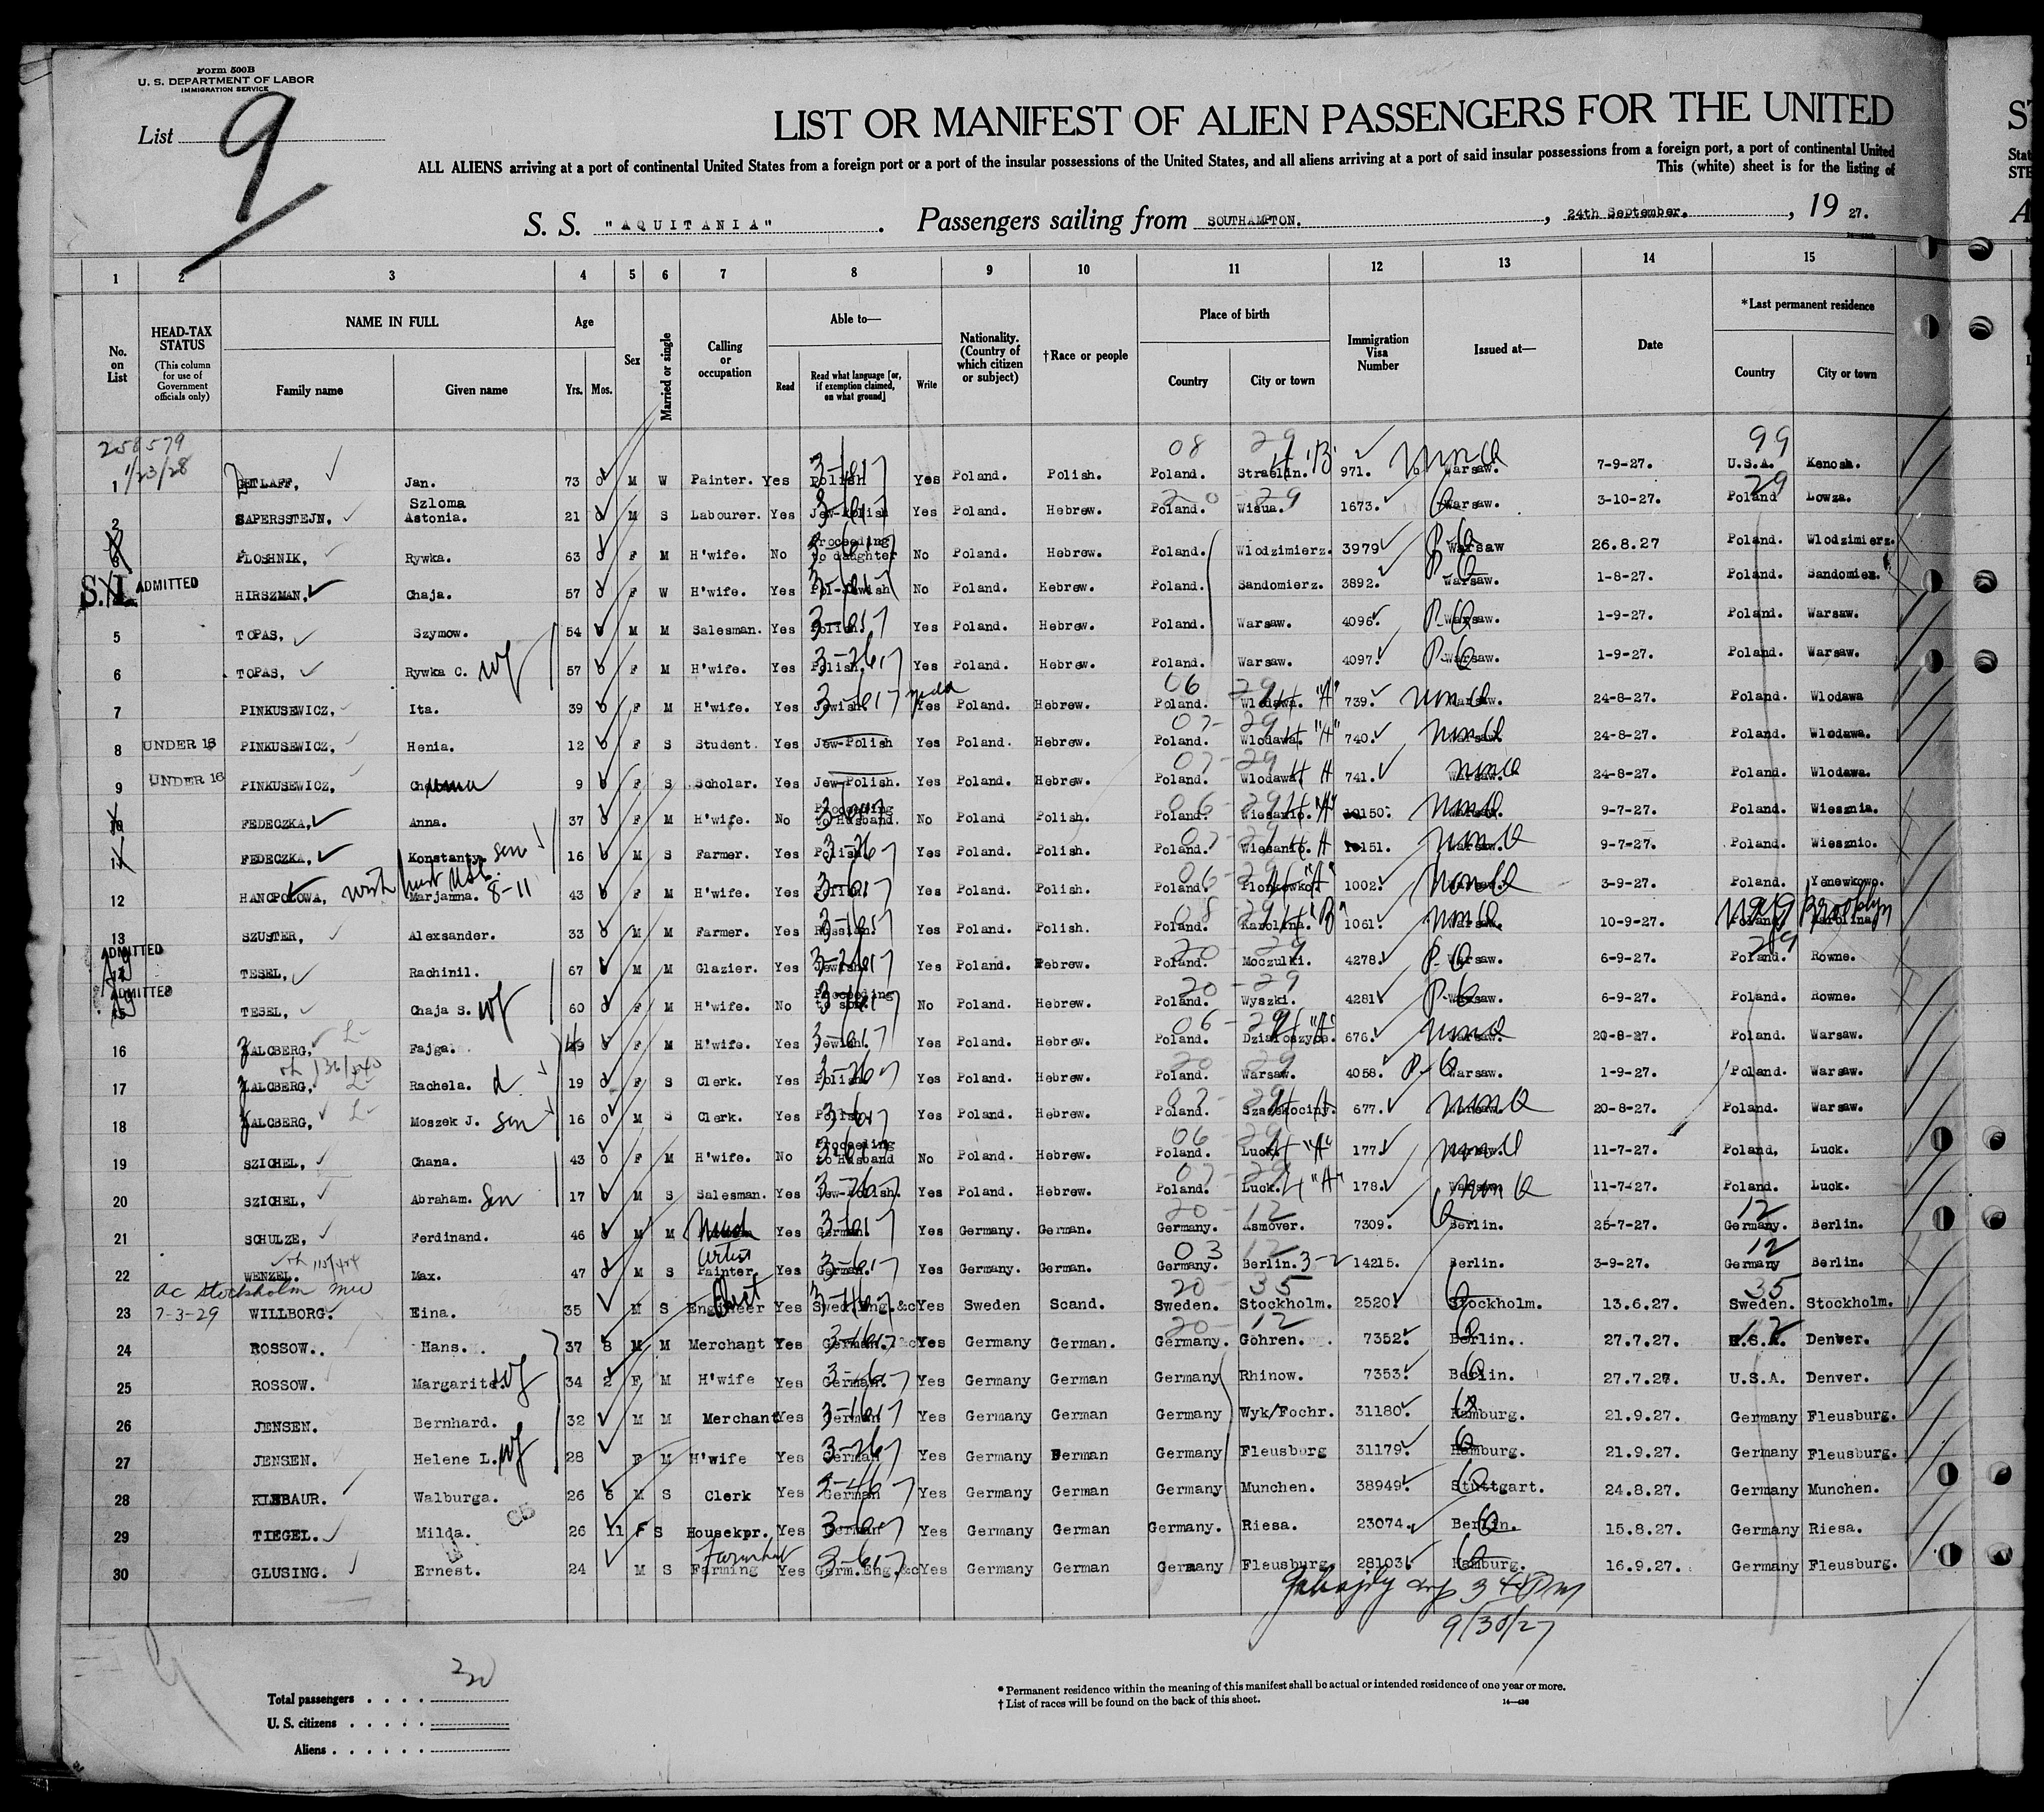 Form 500B
U. S. DEPARTMENT OF LABOR
IMMIGRATION SERVICE
List 9
LIST OR MANIFEST OF ALIEN PASSENGERS FOR THE UNITED
ALL ALIENS arriving at a port of continental United States from a foreign port or a port of the insular possessions of the United States, and all aliens arriving at a port of said insular possessions from a foreign port, a port of continental United
This (white) sheet is for the listing of
S. S. "AQUITANIA". Passengers sailing from SOUTHAMPTON., 24th September., 19 27.
1 2 3 4 5 6 7 8 9 10 11 12 13 14 15
No. on List
HEAD-TAX STATUS (This column for use of Government officials only)
NAME IN FULL Family name Given name
Age Yrs. Mos.
Sex
Married or single
Calling or occupation
Able to— Read Read what language [or, if exemption claimed, on what ground] Write
Nationality. (Country of which citizen or subject)
†Race or people
Place of birth Country City or town
Immigration Visa Number
Issued at—
Date
*Last permanent residence Country City or town
258579
1/23/28
08 29 99
1 DETLAFF, Jan. 73 0 M W Painter. Yes Polish Yes Poland. Polish. Poland. Straelin. 971. Warsaw. 7-9-27. U.S.A. Kenosh.
2 SAPERSSTEJN, Szloma Astonia. 21 0 M S Labourer. Yes Jew-Polish Yes Poland. Hebrew. Poland. Wisua. 1673. Warsaw. 3-10-27. Poland Lowza.
PLOSHNIK, Rywka. 63 0 F M H'wife. No Proceeding to daughter No Poland. Hebrew. Poland. Wlodzimierz. 3979 Warsaw 26.8.27 Poland. Wlodzimierz.
S.I. ADMITTED HIRSZMAN, Chaja. 57 0 F W H'wife. Yes Pol-Jewish No Poland. Hebrew. Poland. Sandomierz. 3892. Warsaw. 1-8-27. Poland. Sandomiez.
5 TOPAS, Szymow. 54 0 M M Salesman. Yes Polish. Yes Poland. Hebrew. Poland. Warsaw. 4096. Warsaw. 1-9-27. Poland. Warsaw.
6 TOPAS, Rywka C. wf 57 0 F M H'wife. Yes Polish. Yes Poland. Hebrew. Poland. Warsaw. 4097. Warsaw. 1-9-27. Poland. Warsaw.
7 PINKUSEWICZ, Ita. 39 0 F M H'wife. Yes Jewish. Yes Poland. Hebrew. Poland. Wlodawa. "A" 739. Warsaw. 24-8-27. Poland. Wlodawa
8 UNDER 16 PINKUSEWICZ, Henia. 12 0 F S Student. Yes Jew-Polish Yes Poland. Hebrew. Poland. Wlodawa. 740. Warsaw. 24-8-27. Poland. Wlodawa.
9 UNDER 16 PINKUSEWICZ, 9 0 F S Scholar. Yes Jew-Polish. Yes Poland. Hebrew. Poland. Wlodawa 741. Warsaw. 24-8-27. Poland. Wlodawa.
10 FEDECZKA, Anna. 37 0 F M H'wife. No Proceeding to Husband. No Poland Polish. Poland. Wiesanio. 10150. Warsaw. 9-7-27. Poland. Wiesznia.
11 FEDECZKA, Konstanty. son 16 0 M S Farmer. Yes Polish. Yes Poland. Polish. Poland. Wiesanio. 10151. Warsaw. 9-7-27. Poland. Wiesznio.
12 HANCPOLOWA, Marjanna. 8-11 43 0 F M H'wife. Yes Polish. Yes Poland. Polish. Poland. Plonkowko. 1002. Warsaw. 3-9-27. Poland. Yenewkowo.
13 SZUSTER, Alexsander. 33 0 M M Farmer. Yes Russian. Yes Poland. Polish. Poland. Karolina. "B" 1061. Warsaw. 10-9-27. Poland Karolina Brooklyn
ADMITTED 14 TESEL, Rachinil. 67 0 M M Glazier. Yes Jewish. Yes Poland. Hebrew. Poland. Moczulki. 4278. Warsaw. 6-9-27. Poland. Rowne.
ADMITTED 15 TESEL, Chaja S. wf 60 0 F M H'wife. No Proceeding to son. No Poland. Hebrew. Poland. Wyszki. 4281 Warsaw. 6-9-27. Poland. Rowne.
16 ZALCBERG, Fajga. F M H'wife. Yes Jewish. Yes Poland. Hebrew. Poland. Dzialoszyce. 676. Warsaw. 20-8-27. Poland. Warsaw.
17 ZALCBERG, Rachela. d 19 0 F S Clerk. Yes Polish Yes Poland. Hebrew. Poland. Warsaw. 4058. Warsaw. 1-9-27. Poland. Warsaw.
18 ZALCBERG, Moszek J. son 16 0 M S Clerk. Yes Polish. Yes Poland. Hebrew. Poland. Szczekociny. 677. Warsaw. 20-8-27. Poland. Warsaw.
19 SZICHEL, Chana. 43 0 F M H'wife. No Proceeding to Husband No Poland. Hebrew. Poland. Luck. "A" 177. Warsaw. 11-7-27. Poland, Luck.
20 SZICHEL, Abraham. son 17 0 M S Salesman. Yes Jew-Polish. Yes Poland. Hebrew. Poland. Luck. "A" 178. Warsaw. 11-7-27. Poland. Luck.
21 SCHULZE, Ferdinand. 46 0 M M Yes German. Yes Germany. German. Germany. Asmover. 7309. Berlin. 25-7-27. Germany. Berlin.
22 WENZEL. Max. 47 0 M S Artist Painter. Yes German. Yes Germany. German. Germany. Berlin. 14215. Berlin. 3-9-27. Germany Berlin.
ac Stockholm
23 7-3-29 WILLBORG. Eina. 35 M S Engineer Yes Swed.Eng.&c Yes Sweden Scand. Sweden. Stockholm. 2520 Stockholm. 13.6.27. Sweden. Stockholm.
24 ROSSOW. Hans. 37 8 M M Merchant Yes German.&c Yes Germany German. Germany. Gohren. 7352. Berlin. 27.7.27. U.S.A. Denver.
25 ROSSOW. Margarite. wf 34 2 F M H'wife Yes German. Yes Germany German Germany Rhinow. 7353. Berlin. 27.7.27. U.S.A. Denver.
26 JENSEN. Bernhard. 32 M M Merchant Yes German Yes Germany German Germany Wyk/Fochr. 31180. Hamburg. 21.9.27. Germany Fleusburg.
27 JENSEN. Helene L. wf 28 F M H'wife Yes German Yes Germany German Germany Fleusborg 31179. Hamburg. 21.9.27. Germany Fleusburg.
28 KLEBAUR. Walburga. 26 6 M S Clerk Yes German Yes Germany German Germany Munchen. 38949. Stuttgart. 24.8.27. Germany Munchen.
29 TIEGEL. Milda. 26 11 F S Housekpr. Yes German Yes Germany German Germany. Riesa. 23074. Berlin. 15.8.27. Germany Riesa.
30 GLUSING. Ernest. 24 M S Farming Yes Germ.Eng.&c Yes Germany German Germany Fleusburg. 28103. Hamburg. 16.9.27. Germany Fleusburg.
9/30/27
Total passengers . . . . 30
U. S. citizens . . . . .
Aliens . . . . . .
* Permanent residence within the meaning of this manifest shall be actual or intended residence of one year or more.
† List of races will be found on the back of this sheet.